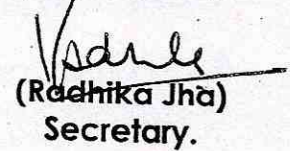 (Radhika Jha)
Secretary.